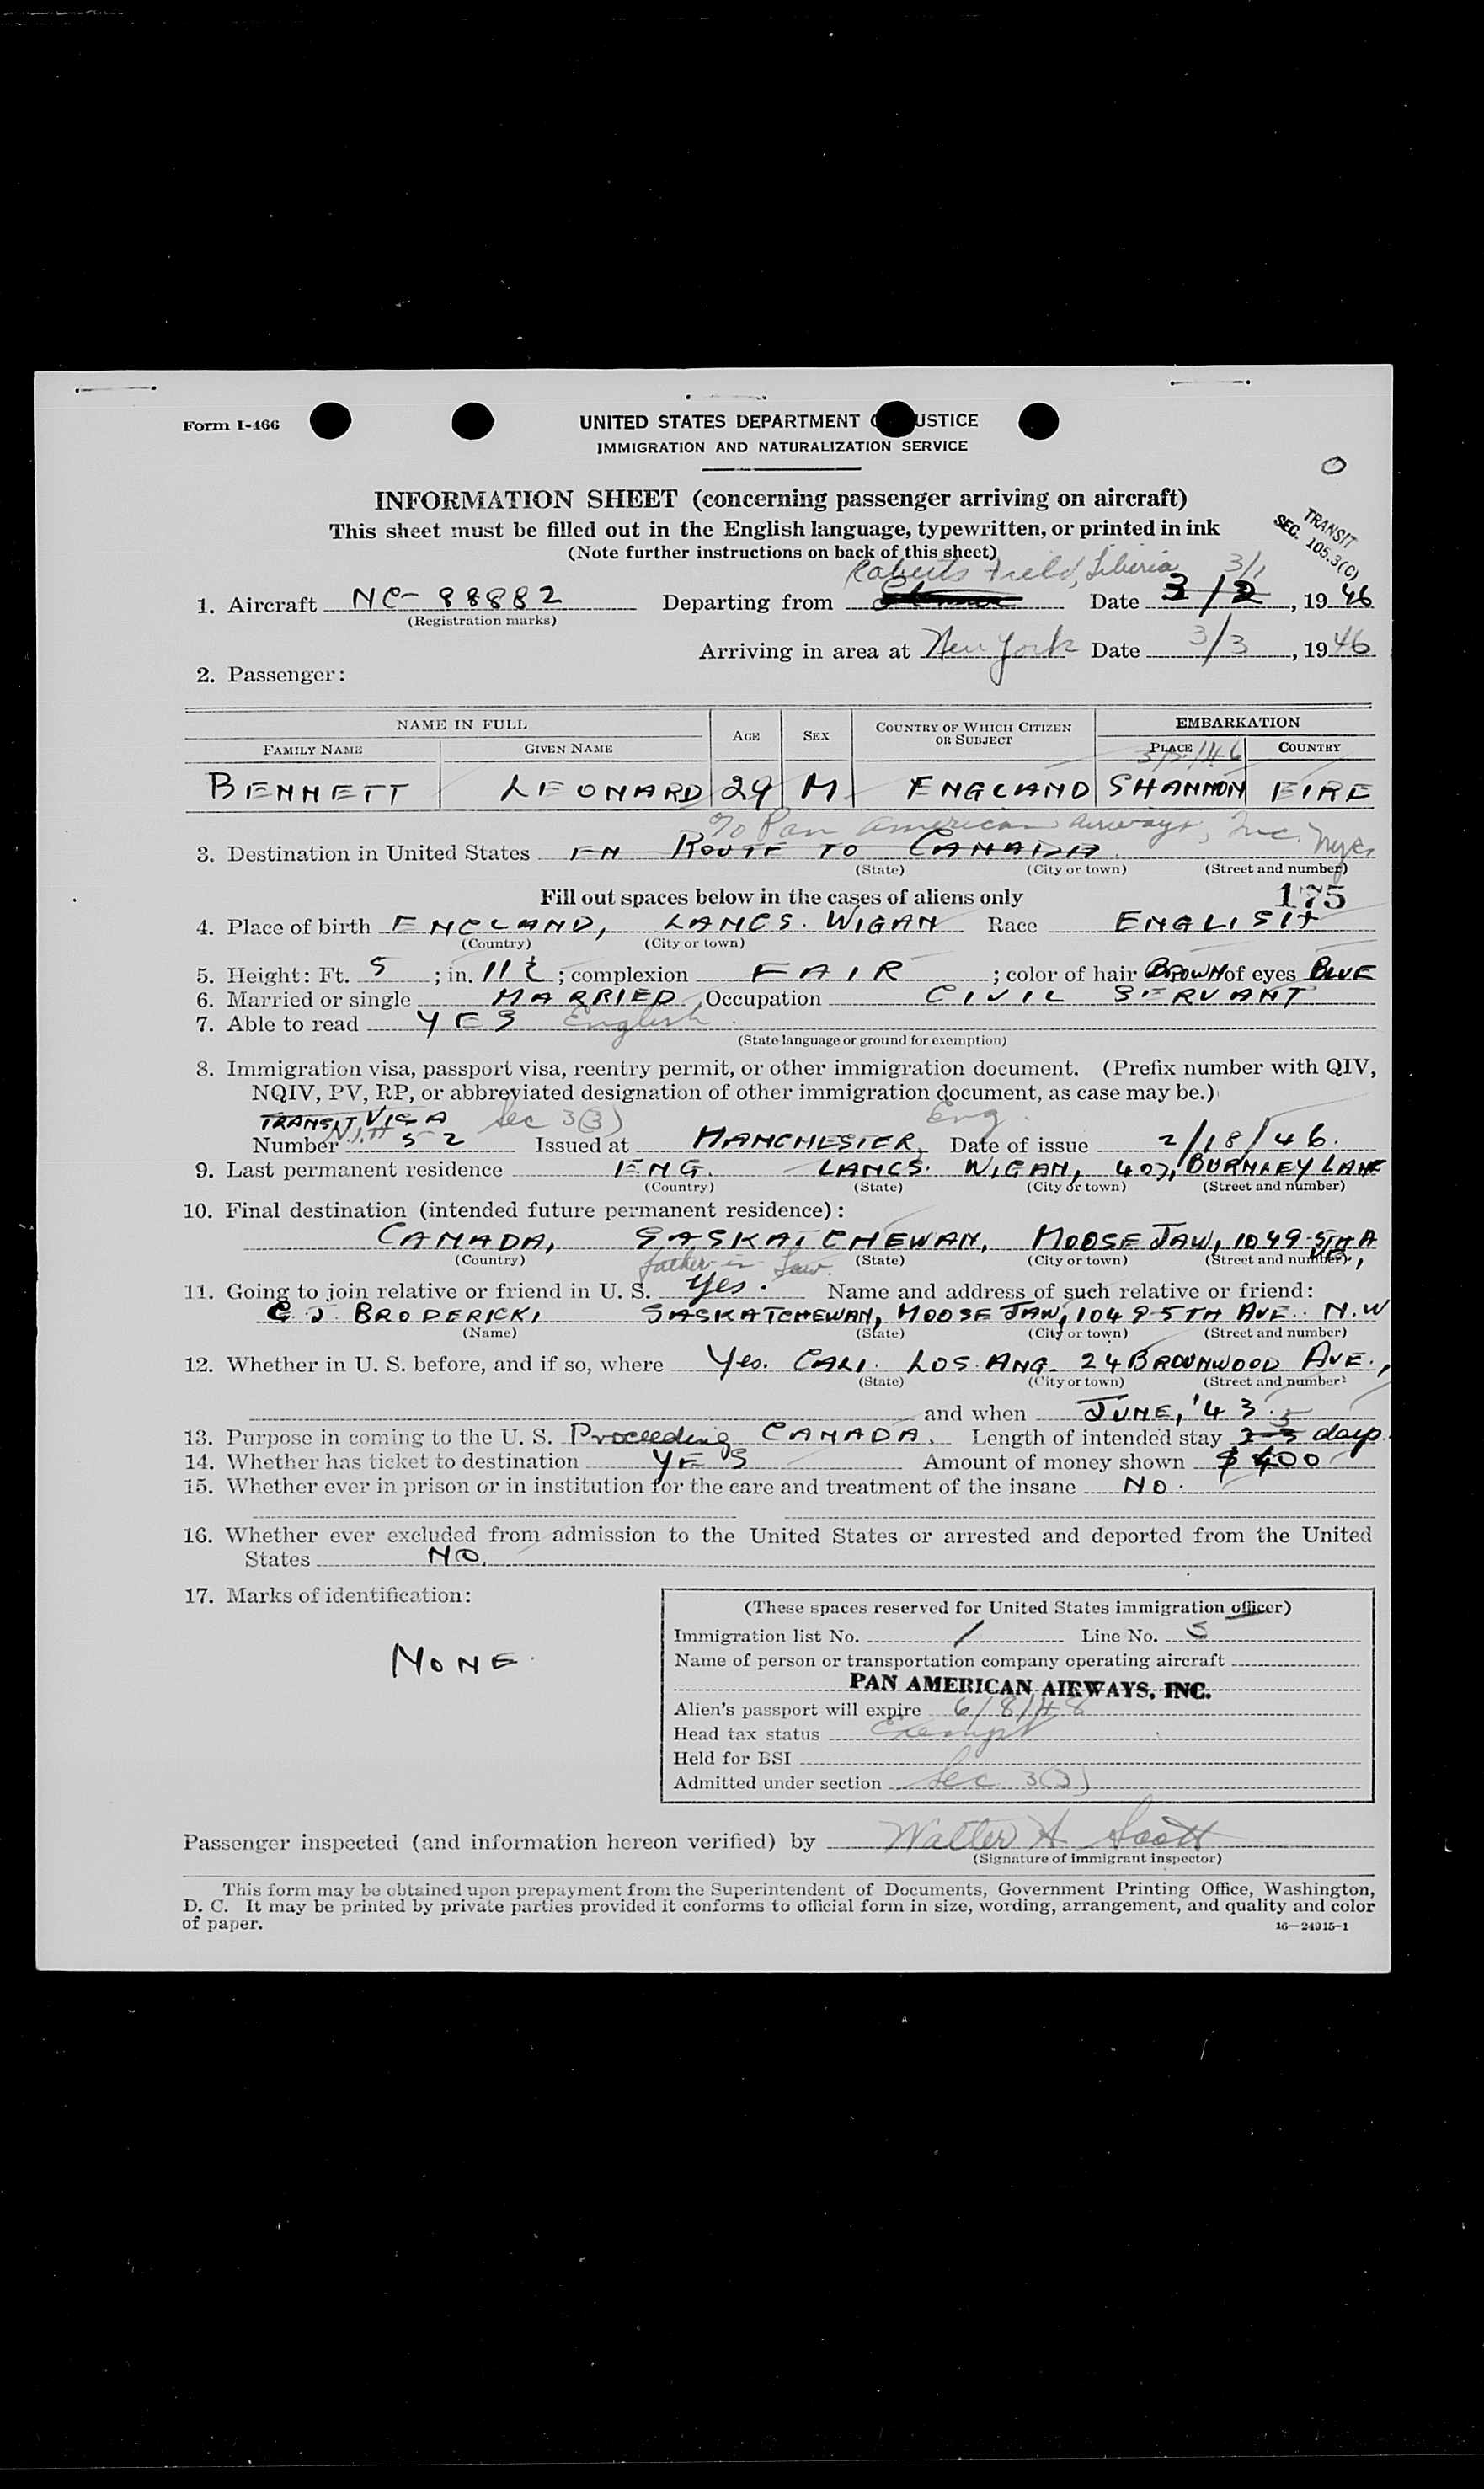 Form I-466
UNITED STATES DEPARTMENT O USTICE
IMMIGRATION AND NATURALIZATION SERVICE
O
INFORMATION SHEET (concerning passenger arriving on aircraft)
This sheet must be filled out in the English language, typewritten, or printed in ink
(Note further instructions on back of this sheet)
TRANSIT
SEC. 105.3(C)
Roberts Field, Liberia 3/1
1. Aircraft NC-88882 Departing from Date 3/2, 1946
(Registration marks)
Arriving in area at New York Date 3/3, 1946
2. Passenger:
NAME IN FULL AGE SEX COUNTRY OF WHICH CITIZEN OR SUBJECT EMBARKATION
FAMILY NAME GIVEN NAME PLACE COUNTRY
BENNETT LEONARD 29 M ENGLAND SHANNON EIRE
% Pan American Airways, Inc. Nyc
3. Destination in United States EN ROUTE TO CANADA
(State) (City or town) (Street and number)
Fill out spaces below in the cases of aliens only 175
4. Place of birth ENGLAND, LANCS. WIGAN Race ENGLISH
(Country) (City or town)
5. Height: Ft. 5; in. 11½; complexion FAIR; color of hair BROWN of eyes BLUE
6. Married or single MARRIED Occupation CIVIL SERVANT
7. Able to read YES English
(State language or ground for exemption)
8. Immigration visa, passport visa, reentry permit, or other immigration document. (Prefix number with QIV,
NQIV, PV, RP, or abbreviated designation of other immigration document, as case may be.)
TRANSIT VISA Sec 3(3) Eng.
Number 52 Issued at MANCHESTER, Date of issue 2/18/46.
9. Last permanent residence ENG. LANCS. WIGAN, 407, BURNLEY LANE
(Country) (State) (City or town) (Street and number)
10. Final destination (intended future permanent residence):
CANADA, SASKATCHEWAN, MOOSE JAW, 1049-5TH A
(Country) (State) (City or town) (Street and number)
father-in-law
11. Going to join relative or friend in U. S. Yes. Name and address of such relative or friend:
J. BRODERICK, SASKATCHEWAN, MOOSE JAW, 1049 5TH AVE. N.W
(Name) (State) (City or town) (Street and number)
12. Whether in U. S. before, and if so, where Yes. CALI. LOS. ANG. 24 BROWNWOOD AVE.,
(State) (City or town) (Street and number)
and when JUNE, '43.
5
13. Purpose in coming to the U. S. Proceeding CANADA. Length of intended stay 2-3 days.
14. Whether has ticket to destination YES Amount of money shown $400
15. Whether ever in prison or in institution for the care and treatment of the insane NO.
16. Whether ever excluded from admission to the United States or arrested and deported from the United
States NO.
17. Marks of identification:
NONE.
(These spaces reserved for United States immigration officer)
Immigration list No. 1 Line No. 5
Name of person or transportation company operating aircraft
PAN AMERICAN AIRWAYS, INC.
Alien's passport will expire 6/8/48
Head tax status Exempt
Held for BSI
Admitted under section Sec 3(3)
Passenger inspected (and information hereon verified) by Walter A Scott
(Signature of immigrant inspector)
This form may be obtained upon prepayment from the Superintendent of Documents, Government Printing Office, Washington,
D. C. It may be printed by private parties provided it conforms to official form in size, wording, arrangement, and quality and color
of paper.
16—24915-1